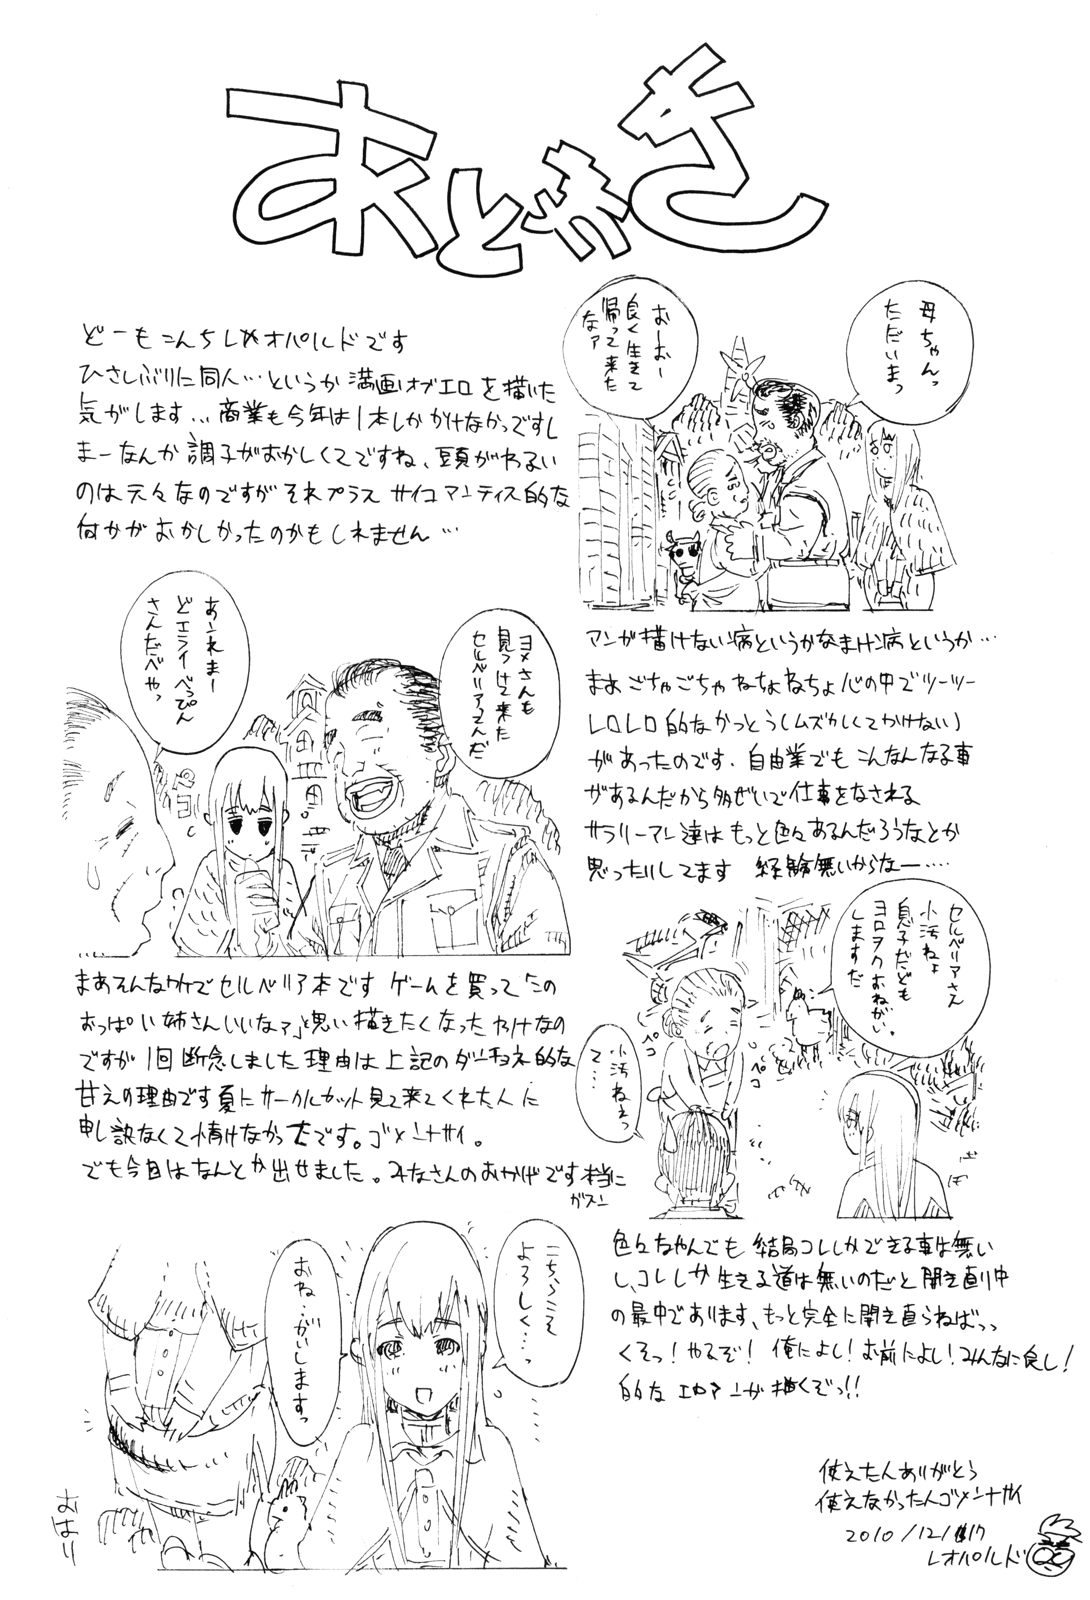 あとがき
どーもこんちしゃオパルドです
ひさしぶりに同人…というか満画オブエロを描いた
気がします…商業も今年は1本しかかけなかっですし
まーなんか調子がおかしくてですね、頭がわるい
のは元々なのですがそれプラス サイコマンティス的な
何かがおかしかったのかもしれません…
母ちゃんっ
ただいまっ
おーおー
良く生きて
帰って来た
なァ
マンガ描けない病というかなまけ病というか…
まあごちゃごちゃ ねちょねちょ心の中でツーツー
レロレロ的なかっとう(ムズかしくてかけない)
があったのです、自由業でもこんなんなる事
があるんだから多ぜいで仕事をなされる
サラリーマン達はもっと色々あるんだろうなとか
思ったりしてます 経験無いからなー…‥
ヨメさんも
見つけて来た
セルベリアさんだ
あンれまー
どエライべっぴん
さんだべやっ
まあそんなワケでセルベリア本です ゲームを買って「この
おっぱい姉さんいいなァ」と思い描きたくなったわけなの
ですが1回断念しました理由は上記のダーチョネ的な
甘えの理由です夏にサークルカット見て来てくれた人に
申し訳なくて情けなかったです。ゴメンナサイ。
でも今回はなんとか出せました。みなさんのおかげです本当に
セルベリアさん
小汚ねぇ
息子だども
ヨロヲクおねがい。
しますだ
小汚ねえっ
て…
ペコ
ペコ
色々なやんでも 結局コレしかできる事は無い
し、コレしか生きる道は無いのだと開き直り中
の最中であります、もっと完全に開き直らねばっっ
くそっ!やるぞ! 俺によし!お前によし!みんなに良し!
的なエロマンガ描くぞっ!!
こちらこそ
よろしく…っ
おね‥がいしますっ
おはり
使えたんありがとう
使えなかったんゴメンナサイ
2010/12/17
レオパルド